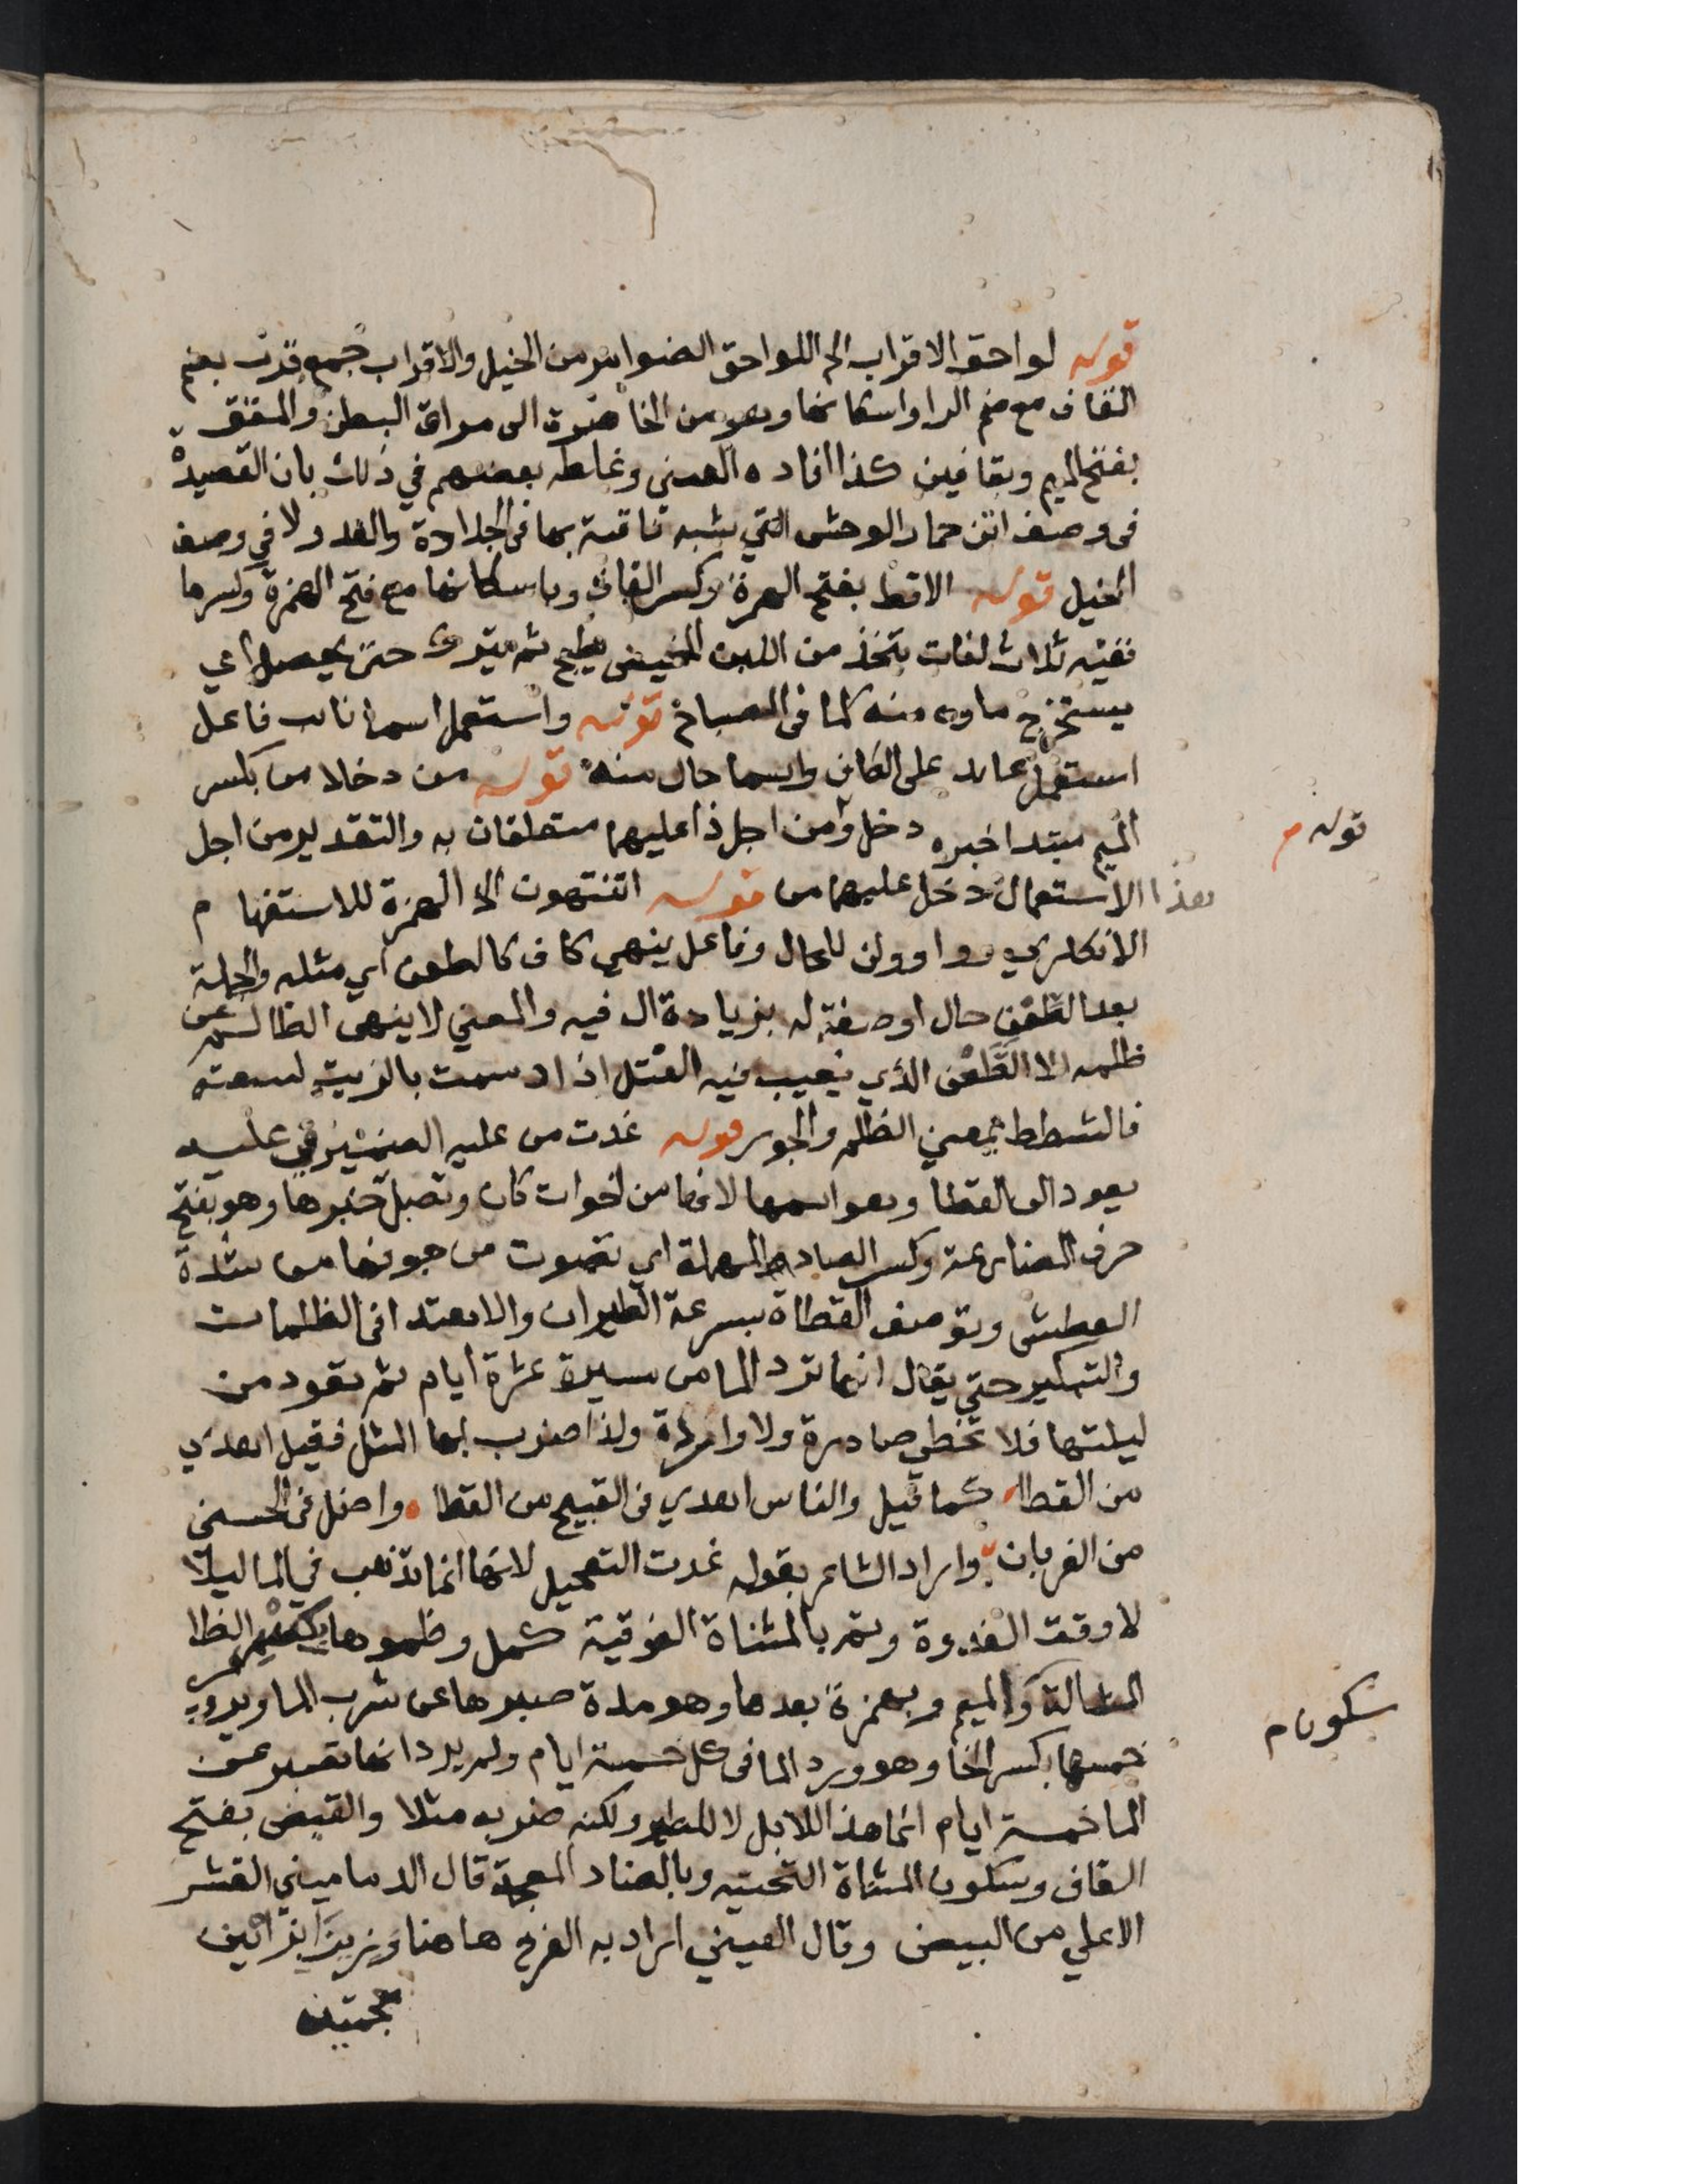 قوله لواحق الاقراب الخ اللواحق الضوامر من الخيل والاقراب جمع قرب بضم
القاف مع ضم الرا واسكانها وهو من الخاصرة الى مراق البطن والمقق
بفتح الميم وبقافين كذا افاده العيني وغلطه بعضهم في ذلك بان القصيدة
في وصف اتن حمار الوحش التي شبه ناقته بها في الجلادة والعدو لا في وصف
الخيل قوله الاقط بفتح الهمزة وكسر القاف وباسكانها مع فتح الهمزة وكسرها
ففيه ثلاث لغات يتخذ من اللبن المخيض يطبخ ثم يترك حتى يمصل اي
يستخرج ماوه منه كما في المصباح قوله واستعمل اسما نايب فاعل
استعمل عايد على الكاف واسما حال منه قوله من دخلا من بكسر
الميم مبتدا خبره دخل ومن اجل ذا عليهما متعلقان به والتقدير من اجل
قوله م
هذا الاستعمال دخل عليهما من قوله اتنتهون الخ الهمزة للاستفهام
الانكاري وواو ولن للحال وفاعل ينهى كاف كالطعن اي مثله والجملة
بعد الطعن حال او صفة له بزيادة ال فيه والمعني لا ينهى الظالم عن
ظلمه الا الطعن الذي يغيب فيه الفتل اذا دسمت بالزيت لسعته
فالشطط بمعني الظلم والجور قوله غدت من عليه الضمير في عليه
يعود الى القطا وهو اسمها لانها من اخوات كان وتصل خبرها وهو بفتح
حرف المضارعة وكسر الصاد المهملة اي تصوت من جوفها من شدة
العطش وتوصف القطاة بسرعة الطيران والاهتدا في الظلمات
والتبكير حتى يقال انها ترد الما من مسيرة عشرة ايام ثم تعود من
ليلتها فلا تخطي صادرة ولا واردة ولذا ضرب بها المثل فقيل اهدي
من القطا كما قيل والناس اهدي في القبيح من القطا واضل في الحسنى
من الغربان واراد الشاعر بقوله غدت التعجيل لانها انما تذهب في الما ليلا
لا وقت الغدوة وتم بالمثناة الفوقية كمل وظموها بكسر الظا
المشالة والميم وبهمزة بعدها وهو مدة صبرها عن شرب الما ويروي
سكون م
خمسها بكسر الخا وهو ورد الما في كل خمسة ايام ولم يرد انها تصبر عن
الما خمسة ايام انما هذا للابل لا للطير ولكنه ضربه مثلا والقيض بفتح
القاف وسكون المثناة التحتيه وبالضاد المعجمة قال الدماميني القشر
الاعلي من البيض وقال العيني اراد به الفرخ هاهنا وزيزا بزايين
معجمتين